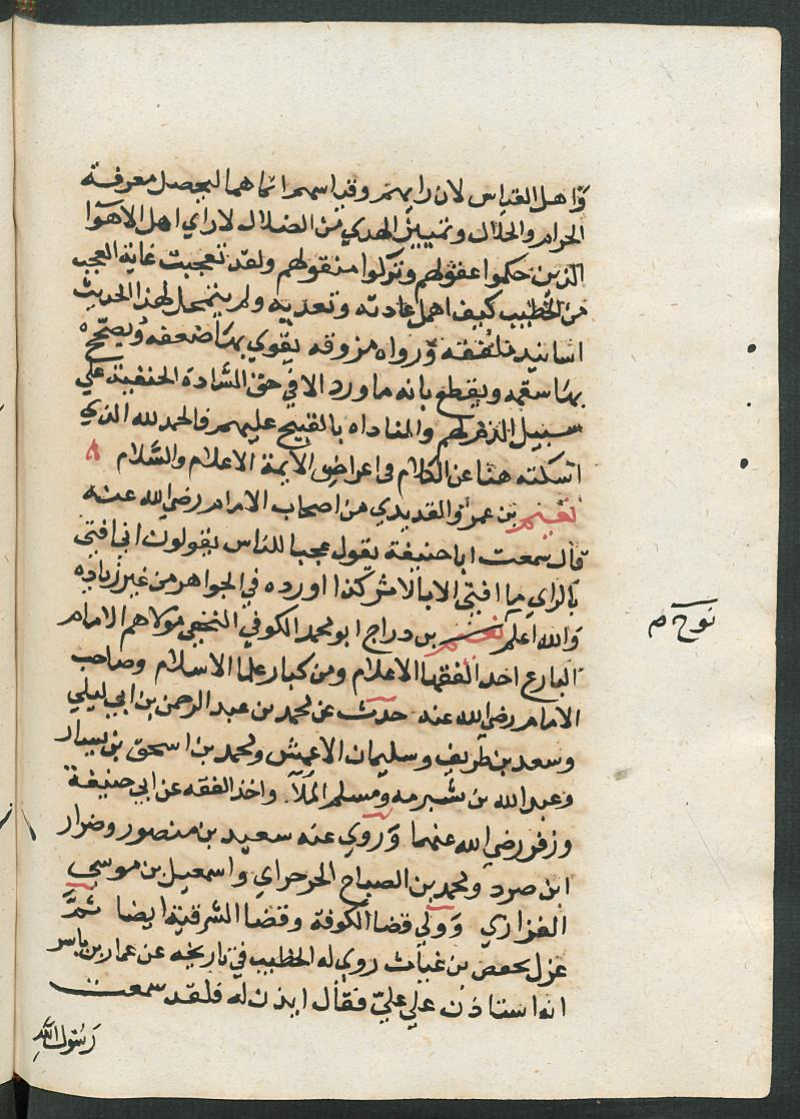 وأهل القياس لان رايهم وقياسهم انما هما ليحصل معرفة
الحرام والحلال وتمييز الهدي من الضلال لا راي اهل الاهوا
الذين حكموا عقولهم وتركوا منقولهم ولقد تعجبت غاية العجب
من الخطيب كيف اهمل عادته وتعديه ولم يتمحل لهذا الحديث
اسانيد ملفقه ورواه مزوقه يقوي بها ضعفه ويصحح
بها سقمه ويقطع بانه ما ورد الا في حق السادة الحنفية علي
سبيل الذم لهم والمناداه بالقبيح عليهم فالحمد لله الذي
اسكته هنا عن الكلام في اعراض الايمة الاعلام والسلام
نعيم بن عمرو القديدي من اصحاب الامام رضي الله عنه
قال سمعت ابا حنيفة يقول عجبا للناس يقولون اني افتي
بالراي ما افتي الا بالاثر كذا اورده في الجواهر من غير زياده
والله اعلم نعيم بن دراج ابو محمد الكوفي النخعي مولاهم الامام
البارع احد الفقها الاعلام ومن كبار علما الاسلام وصاحب
الامام رضي الله عنه حدث عن محمد بن عبد الرحمن بن ابي ليلي
وسعد بن طريف وسليمان الاعمش ومحمد بن اسحق بن يسار
وعبد الله بن شبرمه ومسلم الملآ. واخذ الفقه عن ابي حنيفة
وزفر رضي الله عنهما وروي عنه سعيد بن منصور وضرار
ابن صرد ومحمد بن الصباح الجرجراي واسمعيل بن موسي
الفزاري وولي قضا الكوفة وقضا الشرقية ايضا ثم
عزل بحفص بن غياث روي له الخطيب في تاريخه عن عمار بن ياسر
انه استاذن علي علي فقال ايذن له فلقد سمعت
رسول الله
نوح م